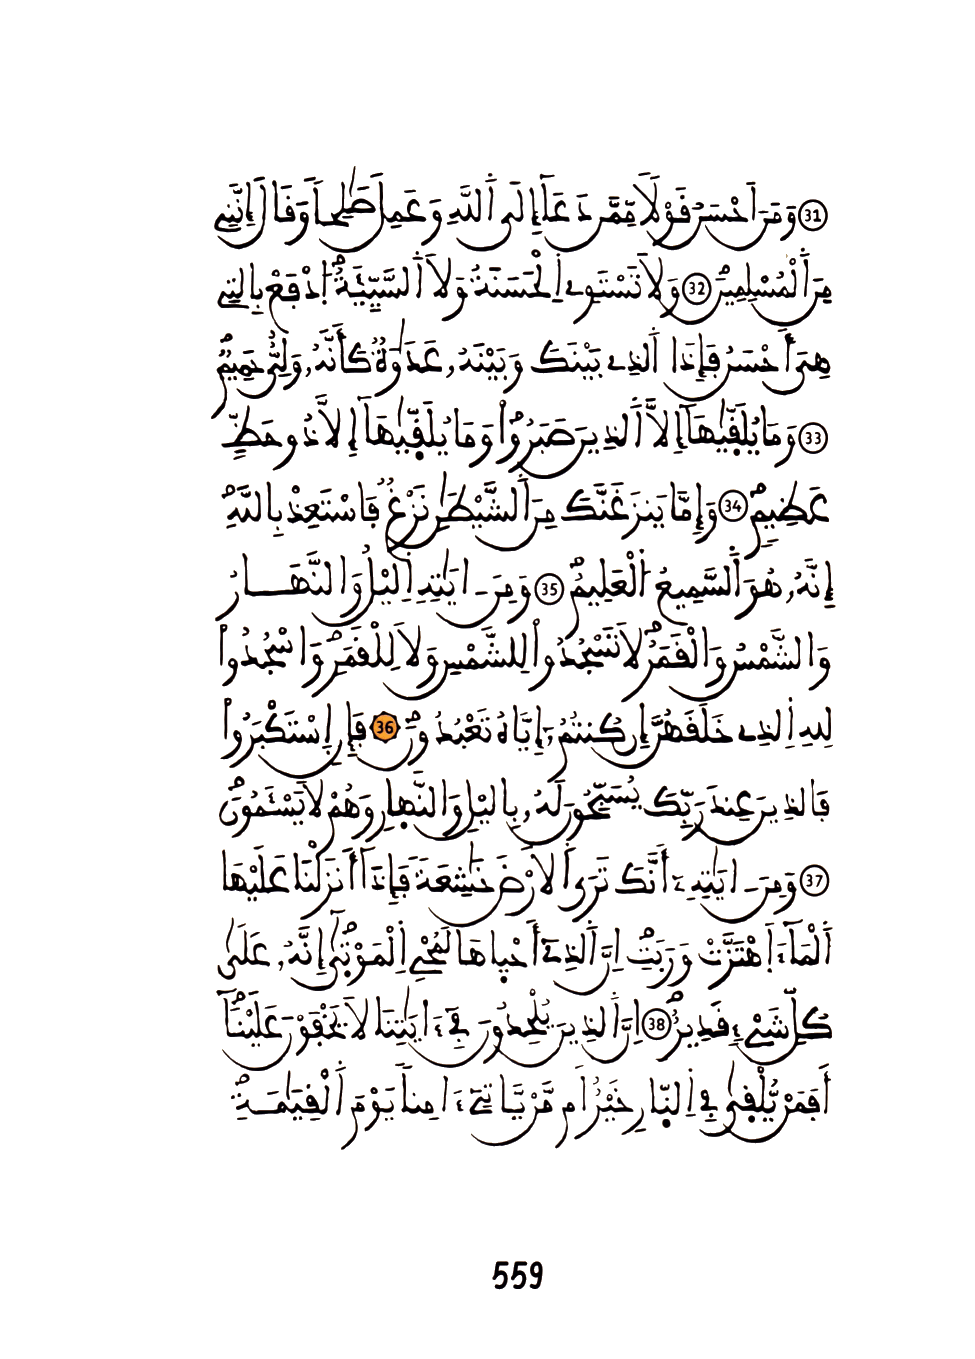 (31) وَمَنَ اَحْسَنُ قَوْلاٗ مِّمَّن دَعَآ إِلَى اَ۬للَّهِ وَعَمِلَ صَٰلِحاٗ وَقَالَ إِنَّنِے
مِنَ اَ۬لْمُسْلِمِينَۖ (32) وَلَا تَسْتَوِے اِ۬لْحَسَنَةُ وَلَا اَ۬لسَّيِّئَةُۖ اُ۪دْفَعْ بِالتِے
هِيَ أَحْسَنُ فَإِذَا اَ۬لذِے بَيْنَكَ وَبَيْنَهُۥ عَدَٰوَةٞ كَأَنَّهُۥ وَلِيٌّ حَمِيمٞۖ
(33) وَمَا يُلَقَّيٰهَآ إِلَّا اَ۬لذِينَ صَبَرُواْ وَمَا يُلَقَّيٰهَآ إِلَّا ذُو حَظٍّ
عَظِيمٖۖ (34) وَإِمَّا يَنزَغَنَّكَ مِنَ اَ۬لشَّيْطَٰنِ نَزْغٞ فَاسْتَعِذْ بِاللَّهِۖ
إِنَّهُۥ هُوَ اَ۬لسَّمِيعُ اُ۬لْعَلِيمُۖ (35) وَمِنَ اٰيَٰتِهِ اِ۬ليْلُ وَالنَّهَارُ
وَالشَّمْسُ وَالْقَمَرُۖ لَا تَسْجُدُواْ لِلشَّمْسِ وَلَا لِلْقَمَرِۖ وَاسْجُدُواْ
لِلهِ اِ۬لذِے خَلَقَهُنَّ إِن كُنتُمُۥٓ إِيَّاهُ تَعْبُدُونَۖ (36) فَإِنِ اِ۪سْتَكْبَرُواْ
فَالذِينَ عِندَ رَبِّكَ يُسَبِّحُونَ لَهُۥ بِاليْلِ وَالنَّهارِ وَهُمْ لَا يَسْـَٔمُونَۖ
(37) وَمِنَ اٰيَٰتِهِۦٓ أَنَّكَ تَرَى اَ۬لَارْضَ خَٰشِعَةٗ فَإِذَآ أَنزَلْنَا عَلَيْهَا
اَ۬لْمَآءَ اَ۪هْتَزَّتْ وَرَبَتِۖ اِنَّ اَ۬لذِےٓ أَحْياهَا لَمُحْيِ اِ۬لْمَوْت۪يٰٓۖ إِنَّهُۥ عَلَىٰ
كُلِّ شَےْءٖ قَدِيرٌۖ (38) اِنَّ اَ۬لذِينَ يُلْحِدُونَ فِےٓ ءَايَٰتِنَا لَا يَخْفَوْنَ عَلَيْنَآۖ
أَفَمَنْ يُّلْق۪يٰ فِے اِ۬لنّ۪ارِ خَيْرٌ اَم مَّنْ يَّاتِےٓ ءَامِناٗ يَوْمَ اَ۬لْقِيَٰمَةِۖ
559